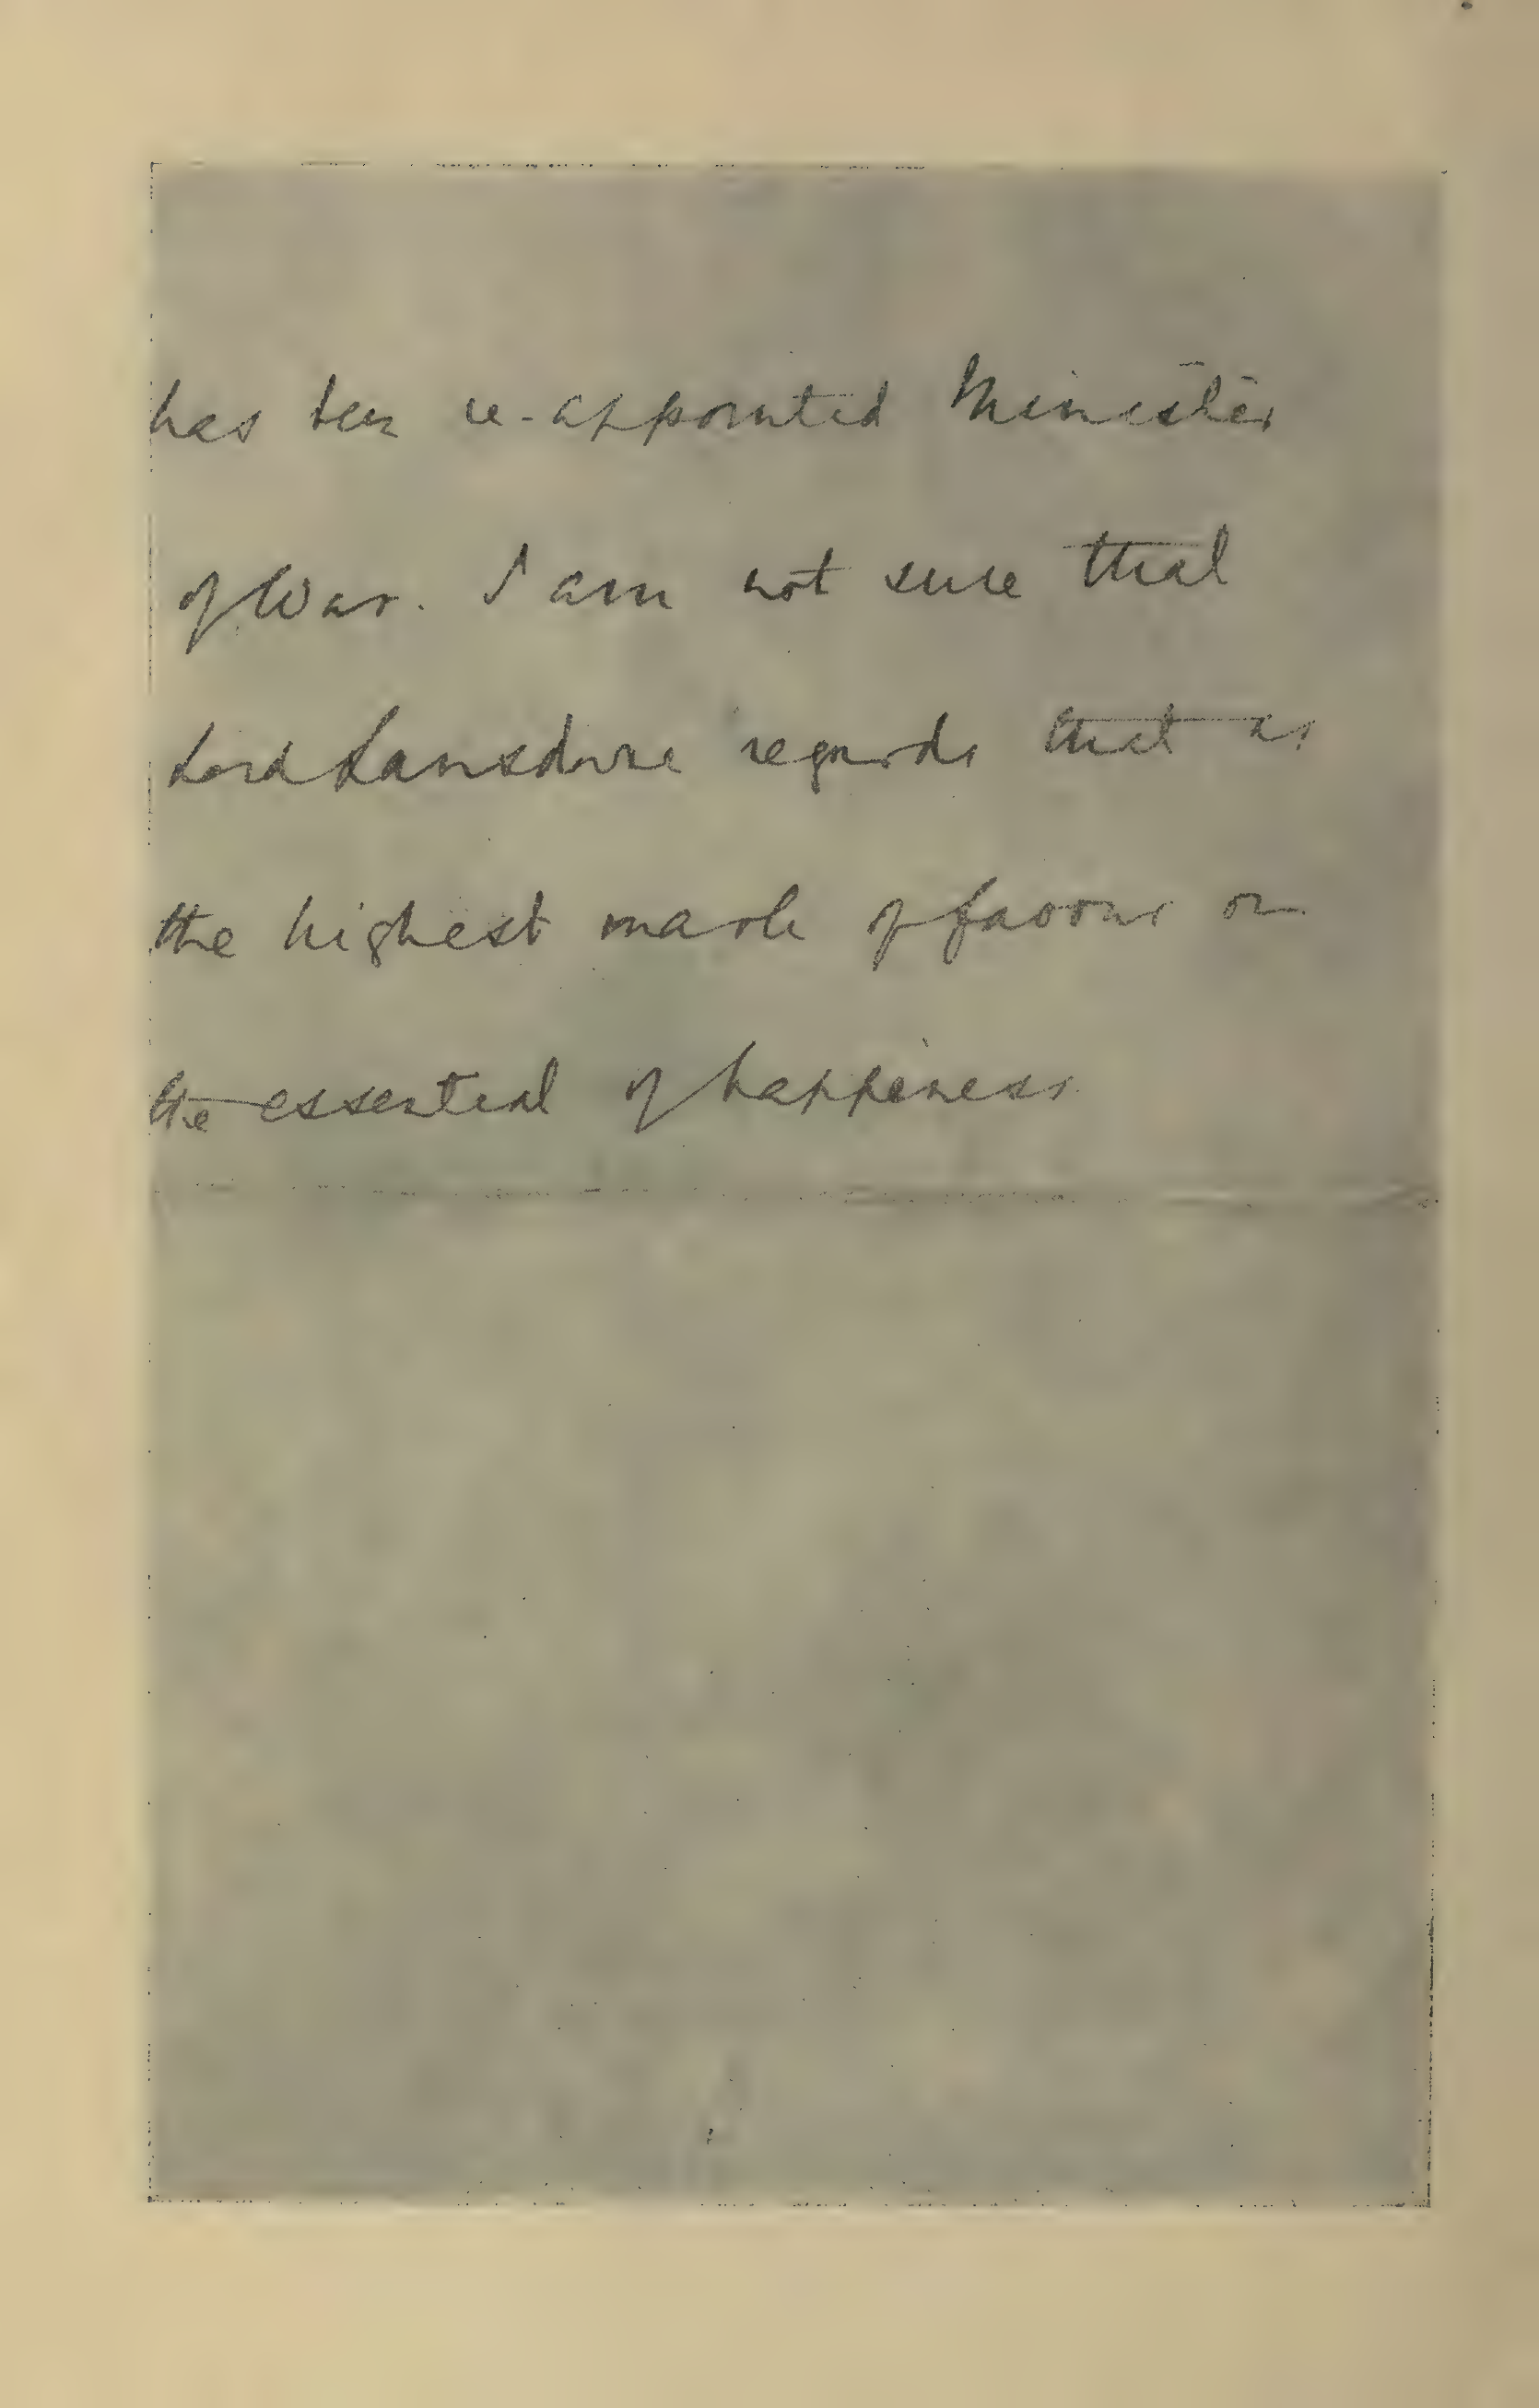 has been re-appointed Minister
of War. I am not sure that
Lord Lansdowne regards that as
the highest mark of favour or
the essential of happiness